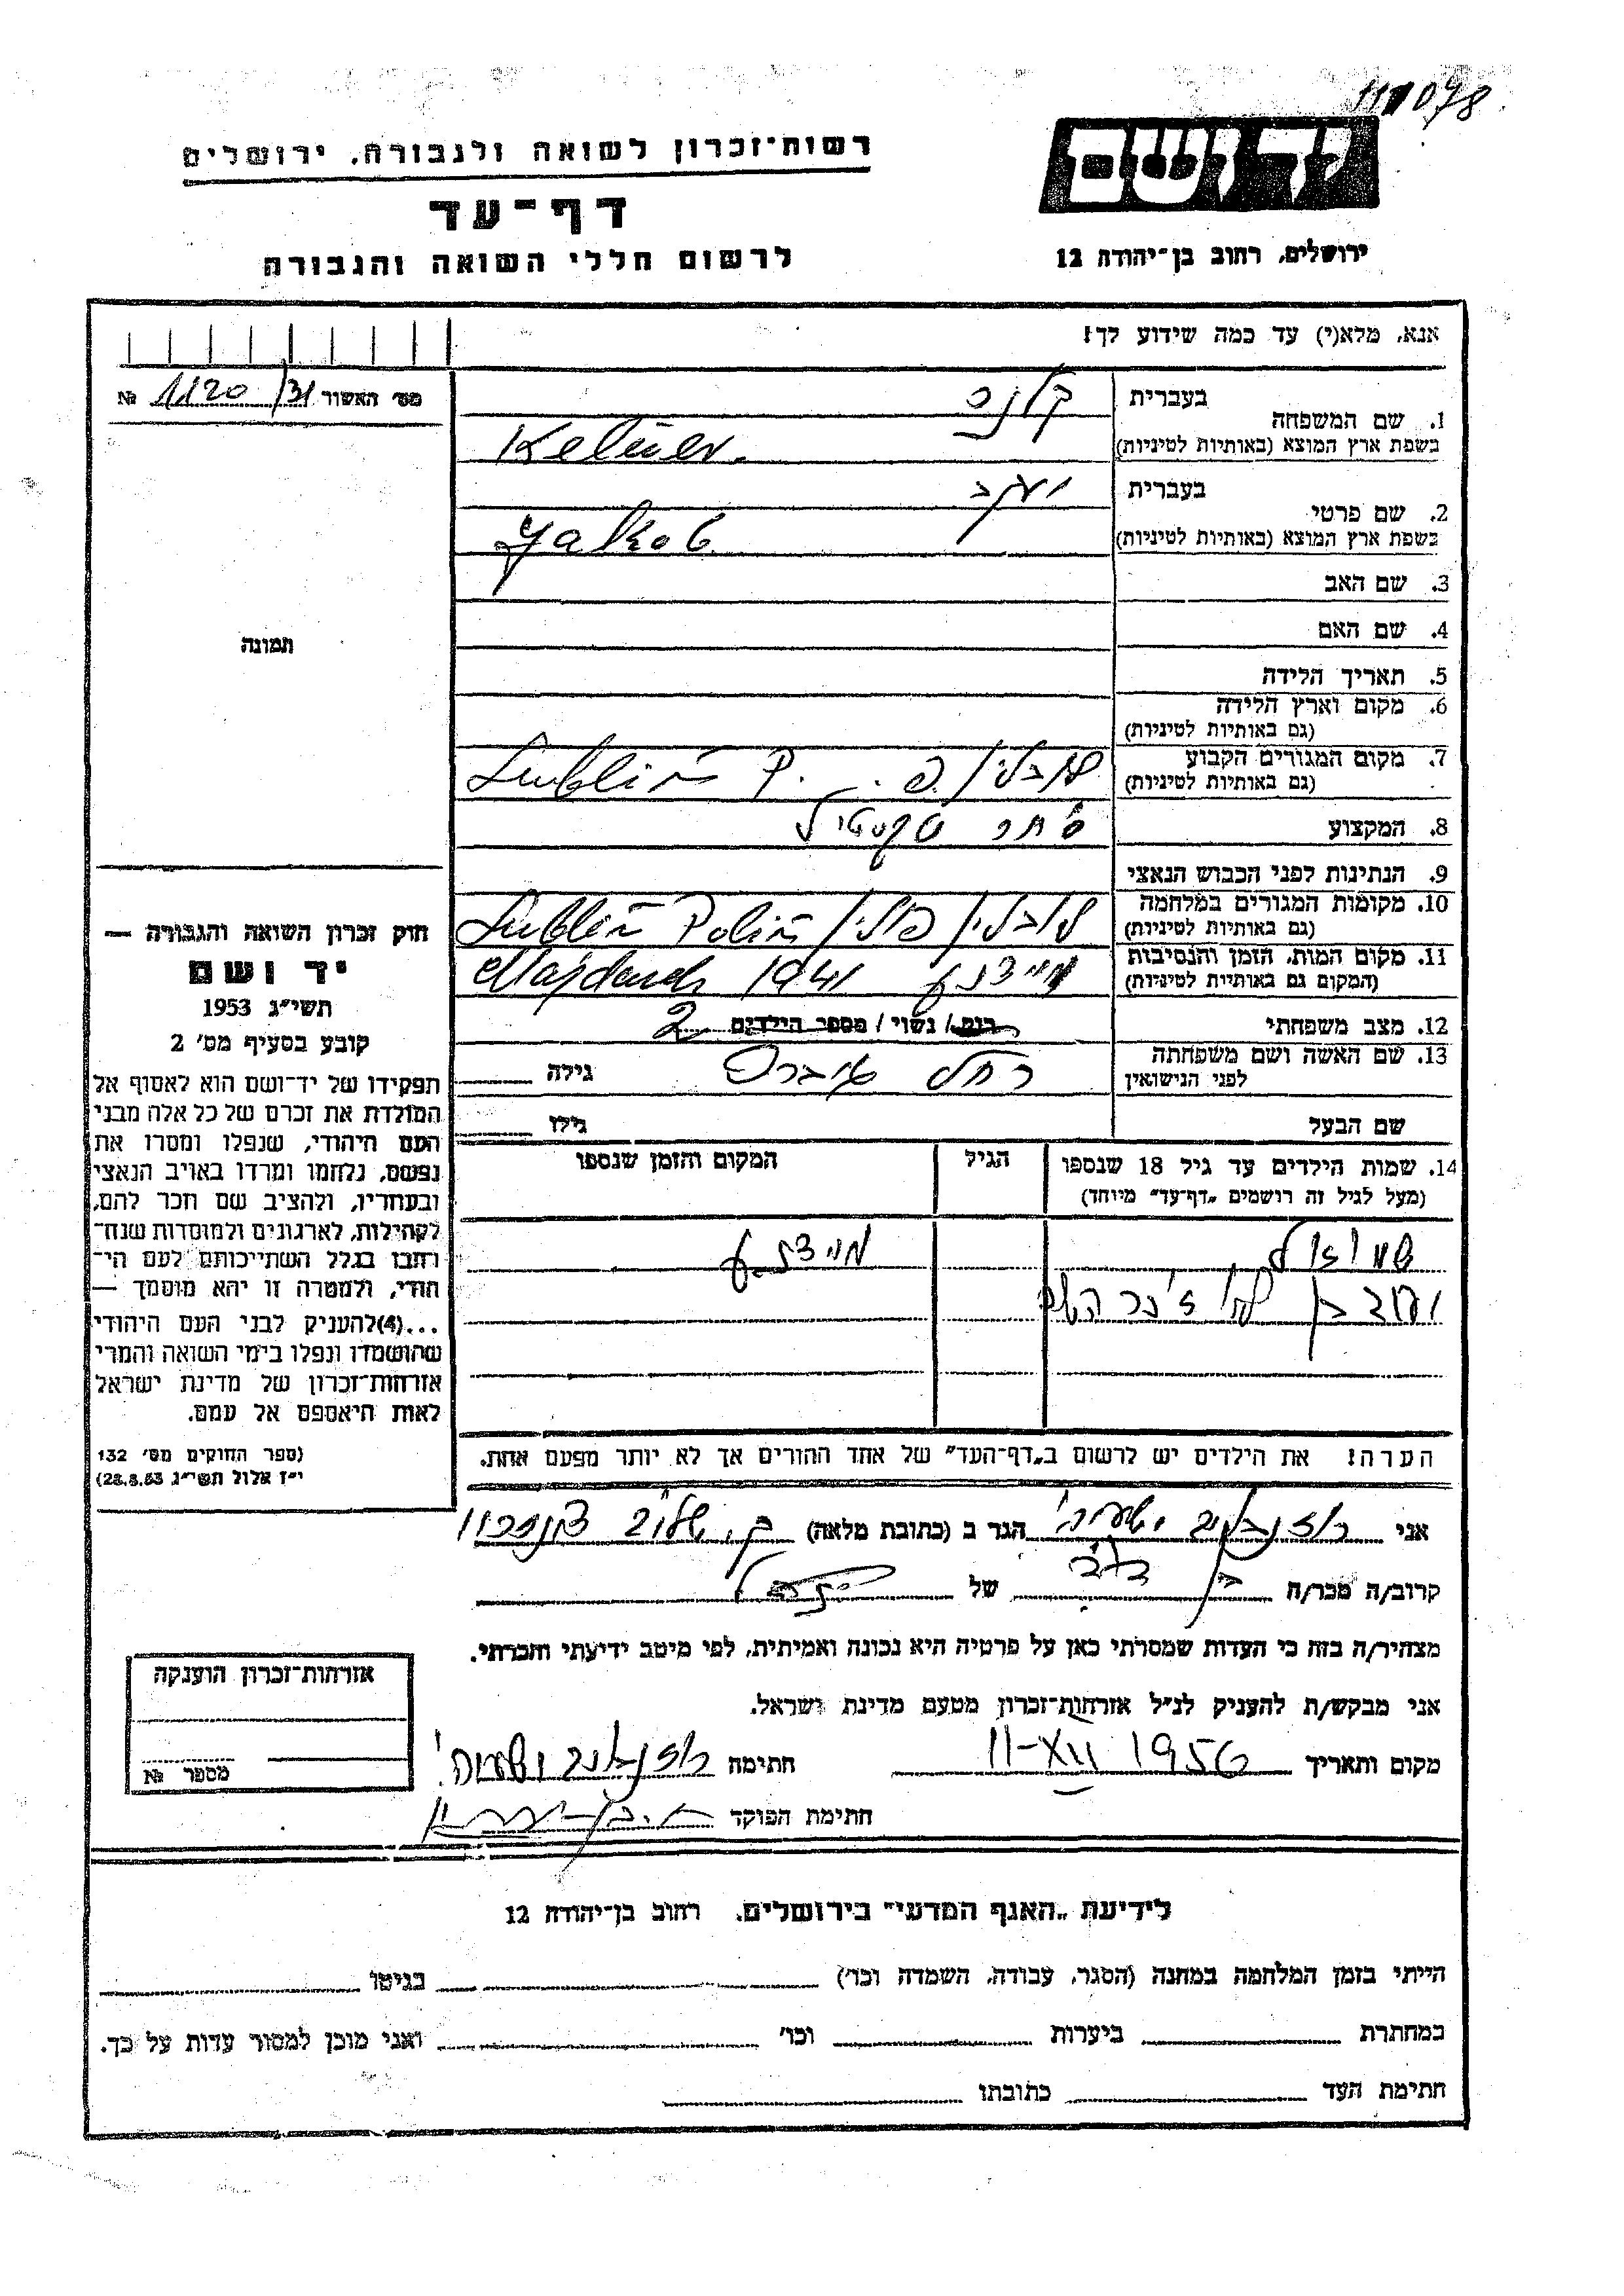 111078
יד ושם
ירושלים, רחוב בן־יהודה 12
רשות־זכרון לשואה ולגבורה, ירושלים
דף־עד
לרשום חללי השואה והגבורה
אנא, מלא(י) עד כמה שידוע לך!
מס׳ האשור 1120/31 №
תמונה
חוק זכרון השואה והגבורה —
יד ושם
תשי״ג 1953
קובע בסעיף מס׳ 2
תפקידו של יד־ושם הוא לאסוף אל
המולדת את זכרם של כל אלה מבני
העם היהודי, שנפלו ומסרו את
נפשם, נלחמו ומרדו באויב הנאצי
ובעוזריו, ולהציב שם וזכר להם,
לקהילות, לארגונים ולמוסדות שנח־
רחבו בגלל השתייכותם לעם הי־
הודי, ולמטרה זו יהא מוסמך —
...(4)להעניק לבני העם היהודי
שהושמדו ונפלו בימי השואה והמרי
אזרחות־זכרון של מדינת ישראל
לאות היאספם אל עמם.
(ספר החוקים מס׳ 132
י״ז אלול תשי״ג 28.8.53)
1. שם המשפחה
בעברית
בשפת ארץ המוצא (באותיות לטיניות) Kelner.
2. שם פרטי
בעברית יעקב
בשפת ארץ המוצא (באותיות לטיניות) Yakob
3. שם האב
4. שם האם
5. תאריך הלידה
6. מקום וארץ הלידה
(גם באותיות לטיניות)
7. מקום המגורים הקבוע לובלין פ. Lublin P.
(גם באותיות לטיניות)
8. המקצוע סוחר טקסטיל
9. הנתינות לפני הכבוש הנאצי
10. מקומות המגורים במלחמה לובלין פולין Lublin Polin
(גם באותיות לטיניות)
11. מקום המות, הזמן והנסיבות מיידנק 1941 Majdanek
(המקום גם באותיות לטיניות)
12. מצב משפחתי רווק / נשוי / מספר הילדים 2
13. שם האשה ושם משפחתה רחל גילה
לפני הנישואין
שם הבעל גילו
14. שמות הילדים עד גיל 18 שנספו הגיל המקום והזמן שנספו
(מעל לגיל זה רושמים „דף־עד״ מיוחד)
שמואל מיידנק
הערה! את הילדים יש לרשום ב„דף־העד״ של אחד ההורים אך לא יותר מפעם אחת.
אני רוזנבלום ישעיהו הגר ב (כתובת מלאה)
קרוב/ה מכר/ה בן דוד של
מצהיר/ה בזה כי העדות שמסרתי כאן על פרטיה היא נכונה ואמיתית, לפי מיטב ידיעתי והכרתי.
אני מבקש/ת להעניק לנ״ל אזרחות־זכרון מטעם מדינת ישראל.
מקום ותאריך 11-XII 1956 חתימה
חתימת הפוקד
אזרחות־זכרון הוענקה
מספר №
לידיעת „האגף המדעי״ בירושלים, רחוב בן־יהודה 12
הייתי בזמן המלחמה במחנה (הסגר, עבודה, השמדה וכו׳) בגיטו
במחתרת ביערות וכו׳ ואני מוכן למסור עדות על כך.
חתימת העד כתובתו